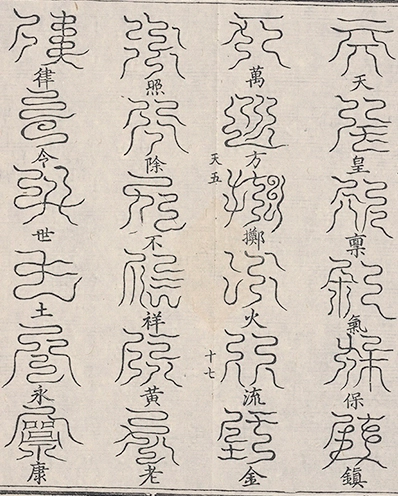 天皇禀氣保鎮
萬方擲火流金
天五
十七
照除不祥黃老
律令世土永康